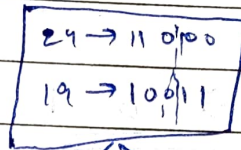 24 → 11000
19 → 10011